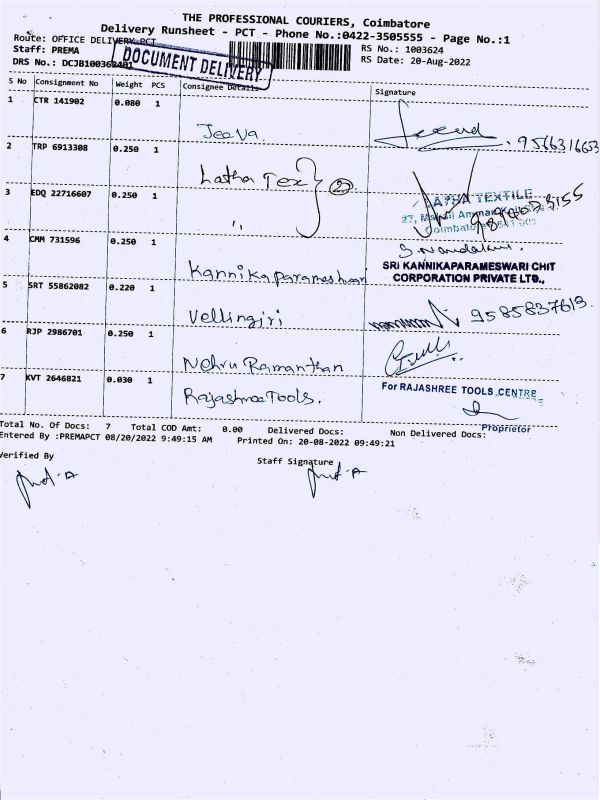 THE PROFESSIONAL COURIERS, Coimbatore
Delivery Runsheet - PCT - Phone No.:0422-3505555 - Page No.:1
Route: OFFICE DELIVERY PCT
RS No.: 1003624
Staff: PREMA
RS Date: 20-Aug-2022
DRS No.: DCJB100362401
DOCUMENT DELIVERY
S No Consignment No Weight PCS Consignee Details Signature
1 CTR 141902 0.080 1
Jeeva. 9566316653
2 TRP 6913308 0.250 1
Latha Tex } 2
3 EDQ 22716607 0.250 1
LATHA TEXTILE
27,
Coimbatore
"
4 CMM 731596 0.250 1
S. Nandakini.
Kannikaparameshwari
SRI KANNIKAPARAMESWARI CHIT
CORPORATION PRIVATE LTD.,
5 SRT 55862082 0.220 1
Vellingiri 9585837613.
6 RJP 2986701 0.250 1
Nehru Ramanthan
7 KVT 2646821 0.030 1
For RAJASHREE TOOLS CENTRE
Rajashree Tools.
Proprietor
Total No. Of Docs: 7 Total COD Amt: 0.00 Delivered Docs: Non Delivered Docs:
Entered By :PREMAPCT 08/20/2022 9:49:15 AM Printed On: 20-08-2022 09:49:21
Verified By
Staff Signature